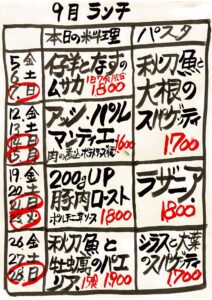 9月 ランチ
本日の料理
パスタ
5. 金
6 土
7 日
仔羊となすの
ムサカ
1800
秋刀魚と
大根の
スパゲッティ
1700
12. 金
13. 土
14 日
15 月
アッシ・パル
マンティエ
1600
19. 金
20. 土
21 日
23 火
200g UP
豚肉ロースト
1800
ラザニア.
1800
26. 金
27 土
28 日
秋刀魚と
牡蠣のパエ
リア.
1900
シラスと大葉
のスパゲッティ
1700